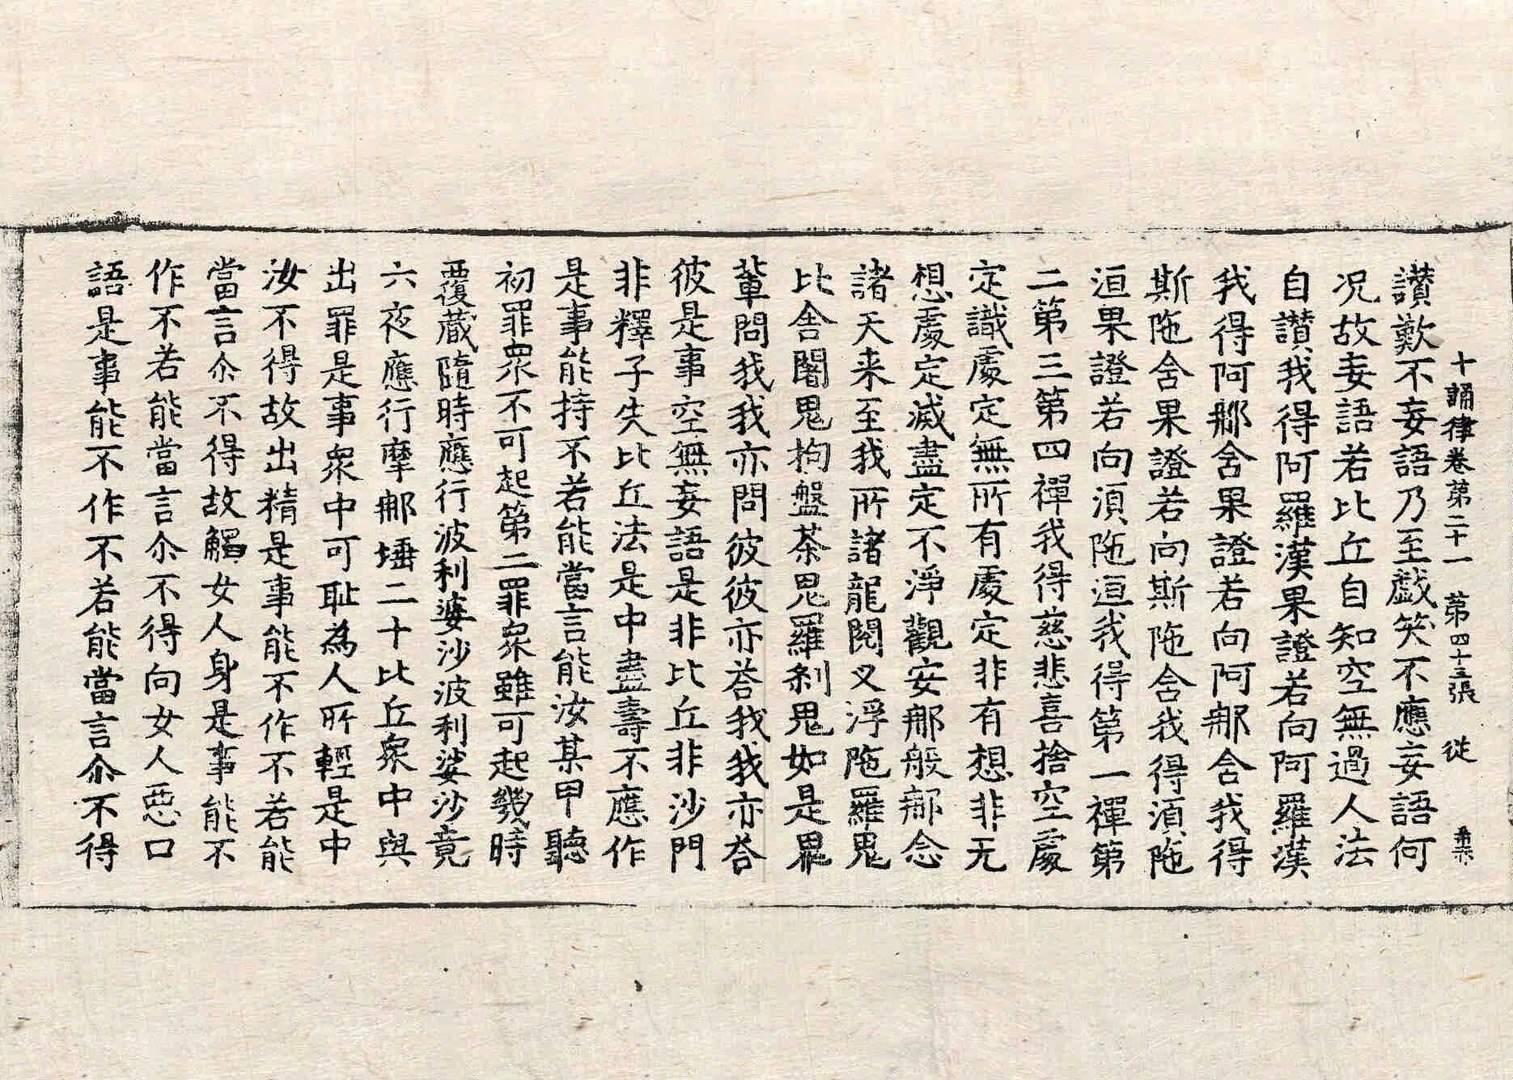 十誦律卷第二十一 第四十三張 從
讃歎不妄語乃至戯笑不應妄語何
况故妄語若比丘自知空無過人法
自讃我得阿羅漢果證若向阿羅漢
我得阿那含果證若向阿那含我得
斯陁含果證若向斯陁含我得湏陁
洹果證若向湏陁洹我得第一禪第
二第三第四禪我得慈悲喜捨空處
定識處定無所有處定非有想非无
想處定滅盡定不淨觀安那般那念
諸天来至我所諸龍閱叉浮陁羅鬼
比舍闍鬼拘盤荼鬼羅刹鬼如是鬼
輩問我我亦問彼彼亦荅我我亦荅
彼是事空無妄語是非比丘非沙門
非釋子失比丘法是中盡壽不應作
是事能持不若能當言能汝某甲聽
初罪衆不可起第二罪衆雖可起幾時
覆藏隨時應行波利婆沙波利婆沙竟
六夜應行摩那埵二十比丘衆中與
出罪是事衆中可耻為人所輕是中
汝不得故出精是事能不作不若能
當言尒不得故觸女人身是事能不
作不若能當言尒不得向女人惡口
語是事能不作不若能當言尒不得